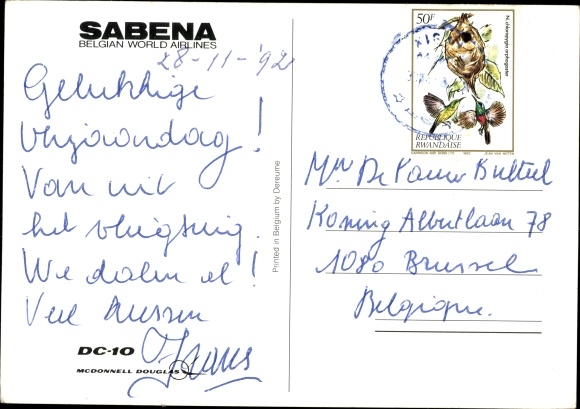 SABENA
BELGIAN WORLD AIRLINES
28-11-'92
Gelukkige
Verjaardag!
Van uit
het vliegtuig.
We dalen al!
Veel kussen
Frans
DC-10
MCDONNELL DOUGLAS
Printed in Belgium by Dereume
50F
N. chloropygia orphogaster
REPUBLIQUE
RWANDAISE
JEAN VAN NOTEN
De
Koning Albertlaan 78
1080 Brussel
Belgique.